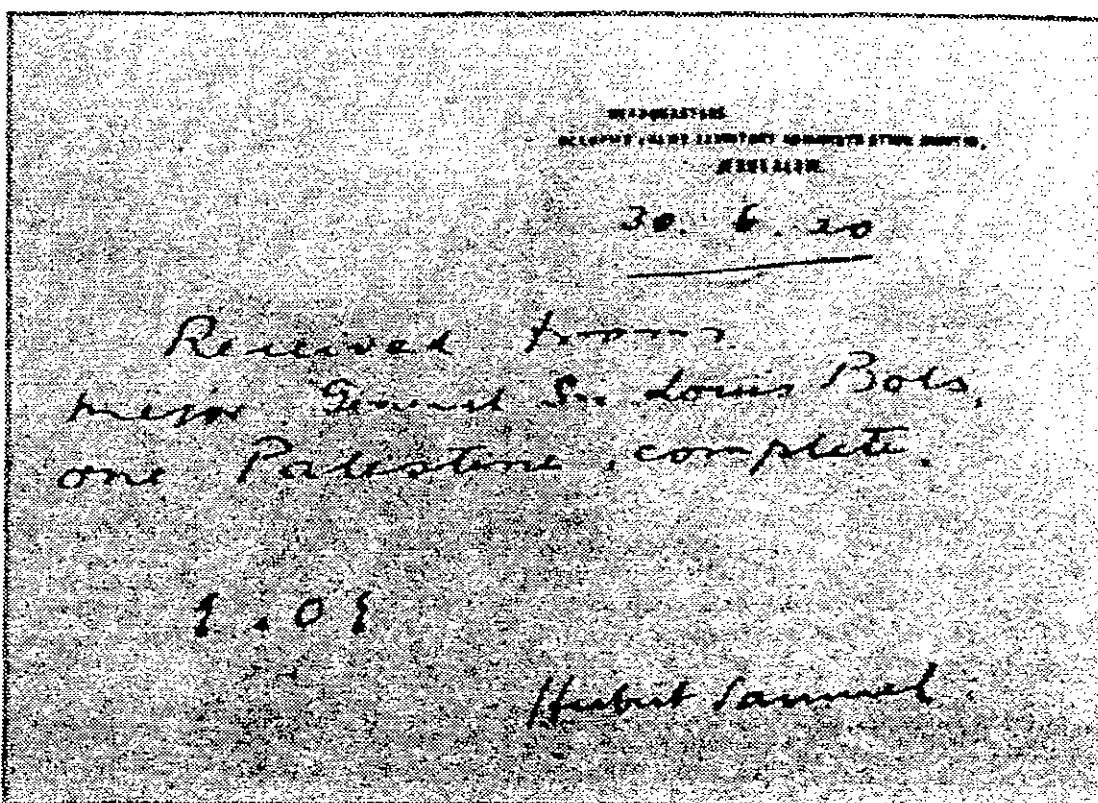 HEADQUARTERS
OCCUPIED ENEMY TERRITORY ADMINISTRATION (SOUTH),
JERUSALEM.
30. 6. 20
Received from
Major General Sir Louis Bols,
one Palestine, complete.
Herbert Samuel.